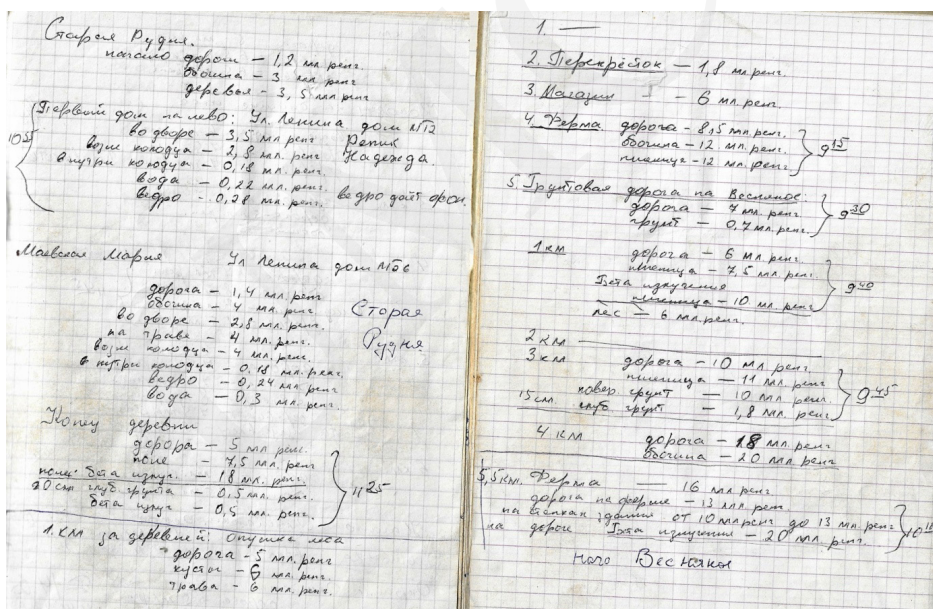 Старая Рудня.
начало дороги — 1,2 мл. ренг.
обочина — 3 мл ренг
деревья — 3,5 мл ренг
Первый дом налево: Ул. Ленина дом №12
10 55
во дворе — 3,5 мл. ренг Репик
возле колодца — 2,8 мл. ренг Надежда
внутри колодца — 0,18 мл. ренг.
вода — 0,22 мл. ренг.
ведро — 0,28 мл. ренг. ведро даёт фон.
Маевская Мария Ул Ленина дом №66
дорога — 1,4 мл. ренг
обочина — 4 мл. ренг
во дворе — 2,8 мл. ренг. Старая
на траве — 4 мл. ренг. Рудня
возле колодца — 4 мл. ренг.
внутри колодца — 0,18 мл. ренг.
ведро — 0,24 мл. ренг
вода — 0,3 мл. ренг.
Конец деревни
дорога — 5 мл ренг.
поле — 7,5 мл. ренг
бета излуч. — 18 мл. ренг.
20 см глуб грунта — 0,5 мл. ренг.
бета излуч — 0,5 мл. ренг.
11 25
1. км за деревней: опушка леса
дорога — 5 мл. ренг
кусток — 6 мл. ренг
трава — 6 мл. ренг.
1. —
2. Перекрёсток — 1,8 мл. ренг.
3. Магазин — 6 мл. ренг.
4. Ферма дорога — 8,5 мл. ренг.
обочина — 12 мл. ренг.
пшеница — 12 мл. ренг.
9 15
5. Грунтовая дорога на Весняное:
дорога — 7 мл. ренг
грунт — 0,7 мл. ренг.
9 30
1 км дорога — 6 мл. ренг.
пшеница — 7,5 мл. ренг.
Бета излучения
пшеница — 10 мл. ренг
9 40
лес — 6 мл. ренг.
2 км
3 км дорога — 10 мл ренг.
пшеница — 11 мл. ренг
повер. грунт — 10 мл. ренг.
15 см глуб грунт — 1,8 мл. ренг
9 45
4 км дорога — 18 мл. ренг
обочина — 20 мл. ренг
5,5 км. Ферма — 16 мл. ренг
дорога на ферме — 13 мл. ренг.
на стенках здания от 10 мл ренг до 13 мл. ренг
на дороге Бета излучение — 20 мл. ренг.
Весняны